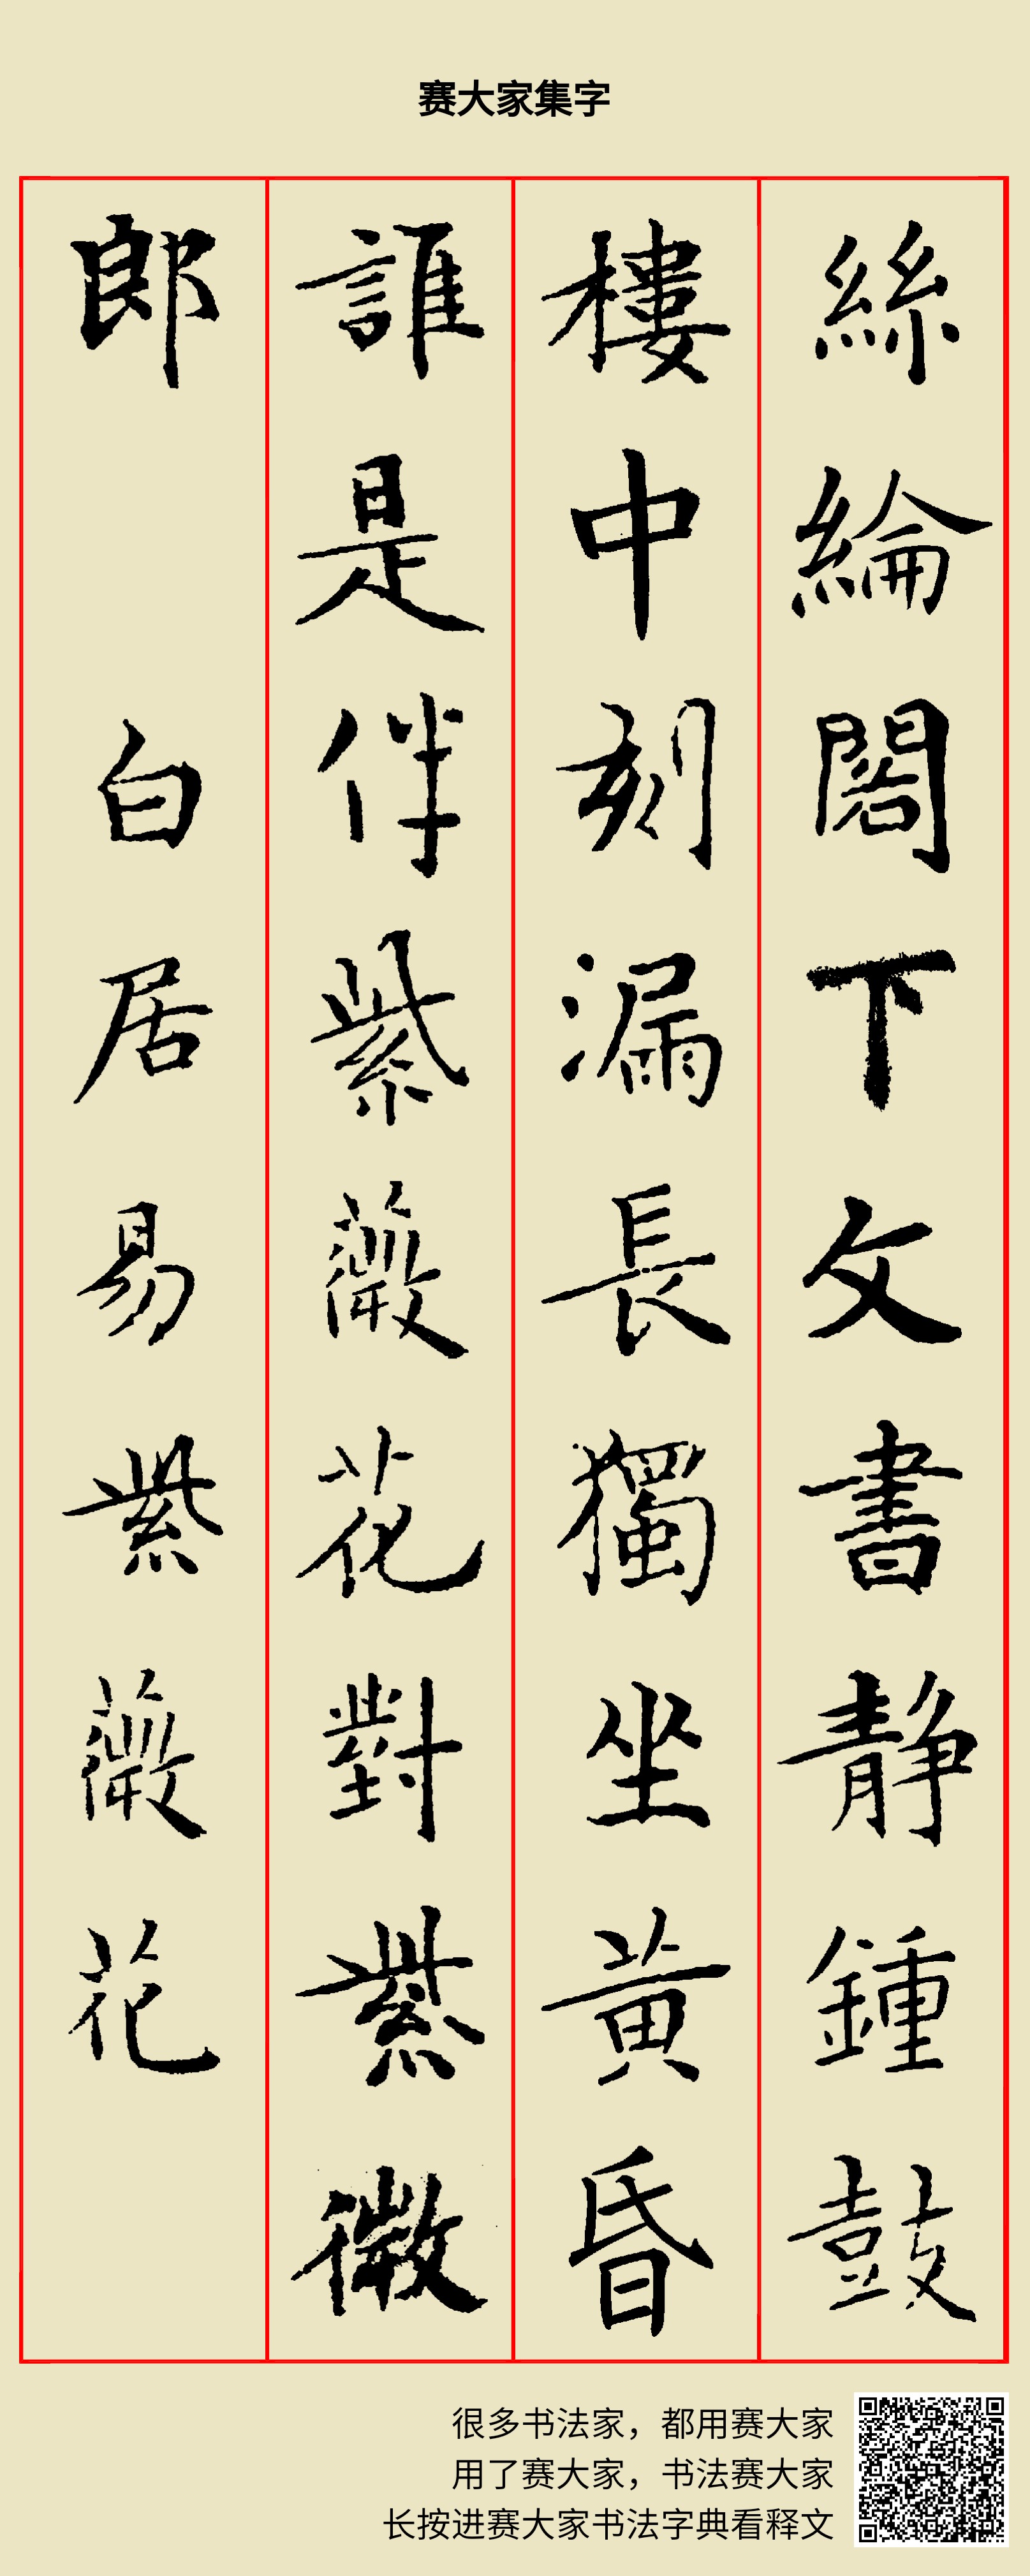 赛大家集字
絲綸閣下文書静鍾鼓
樓中刻漏長獨坐黃昏
誰是伴紫薇花對紫微
郎 白居易紫薇花
很多书法家，都用赛大家
用了赛大家，书法赛大家
长按进赛大家书法字典看释文